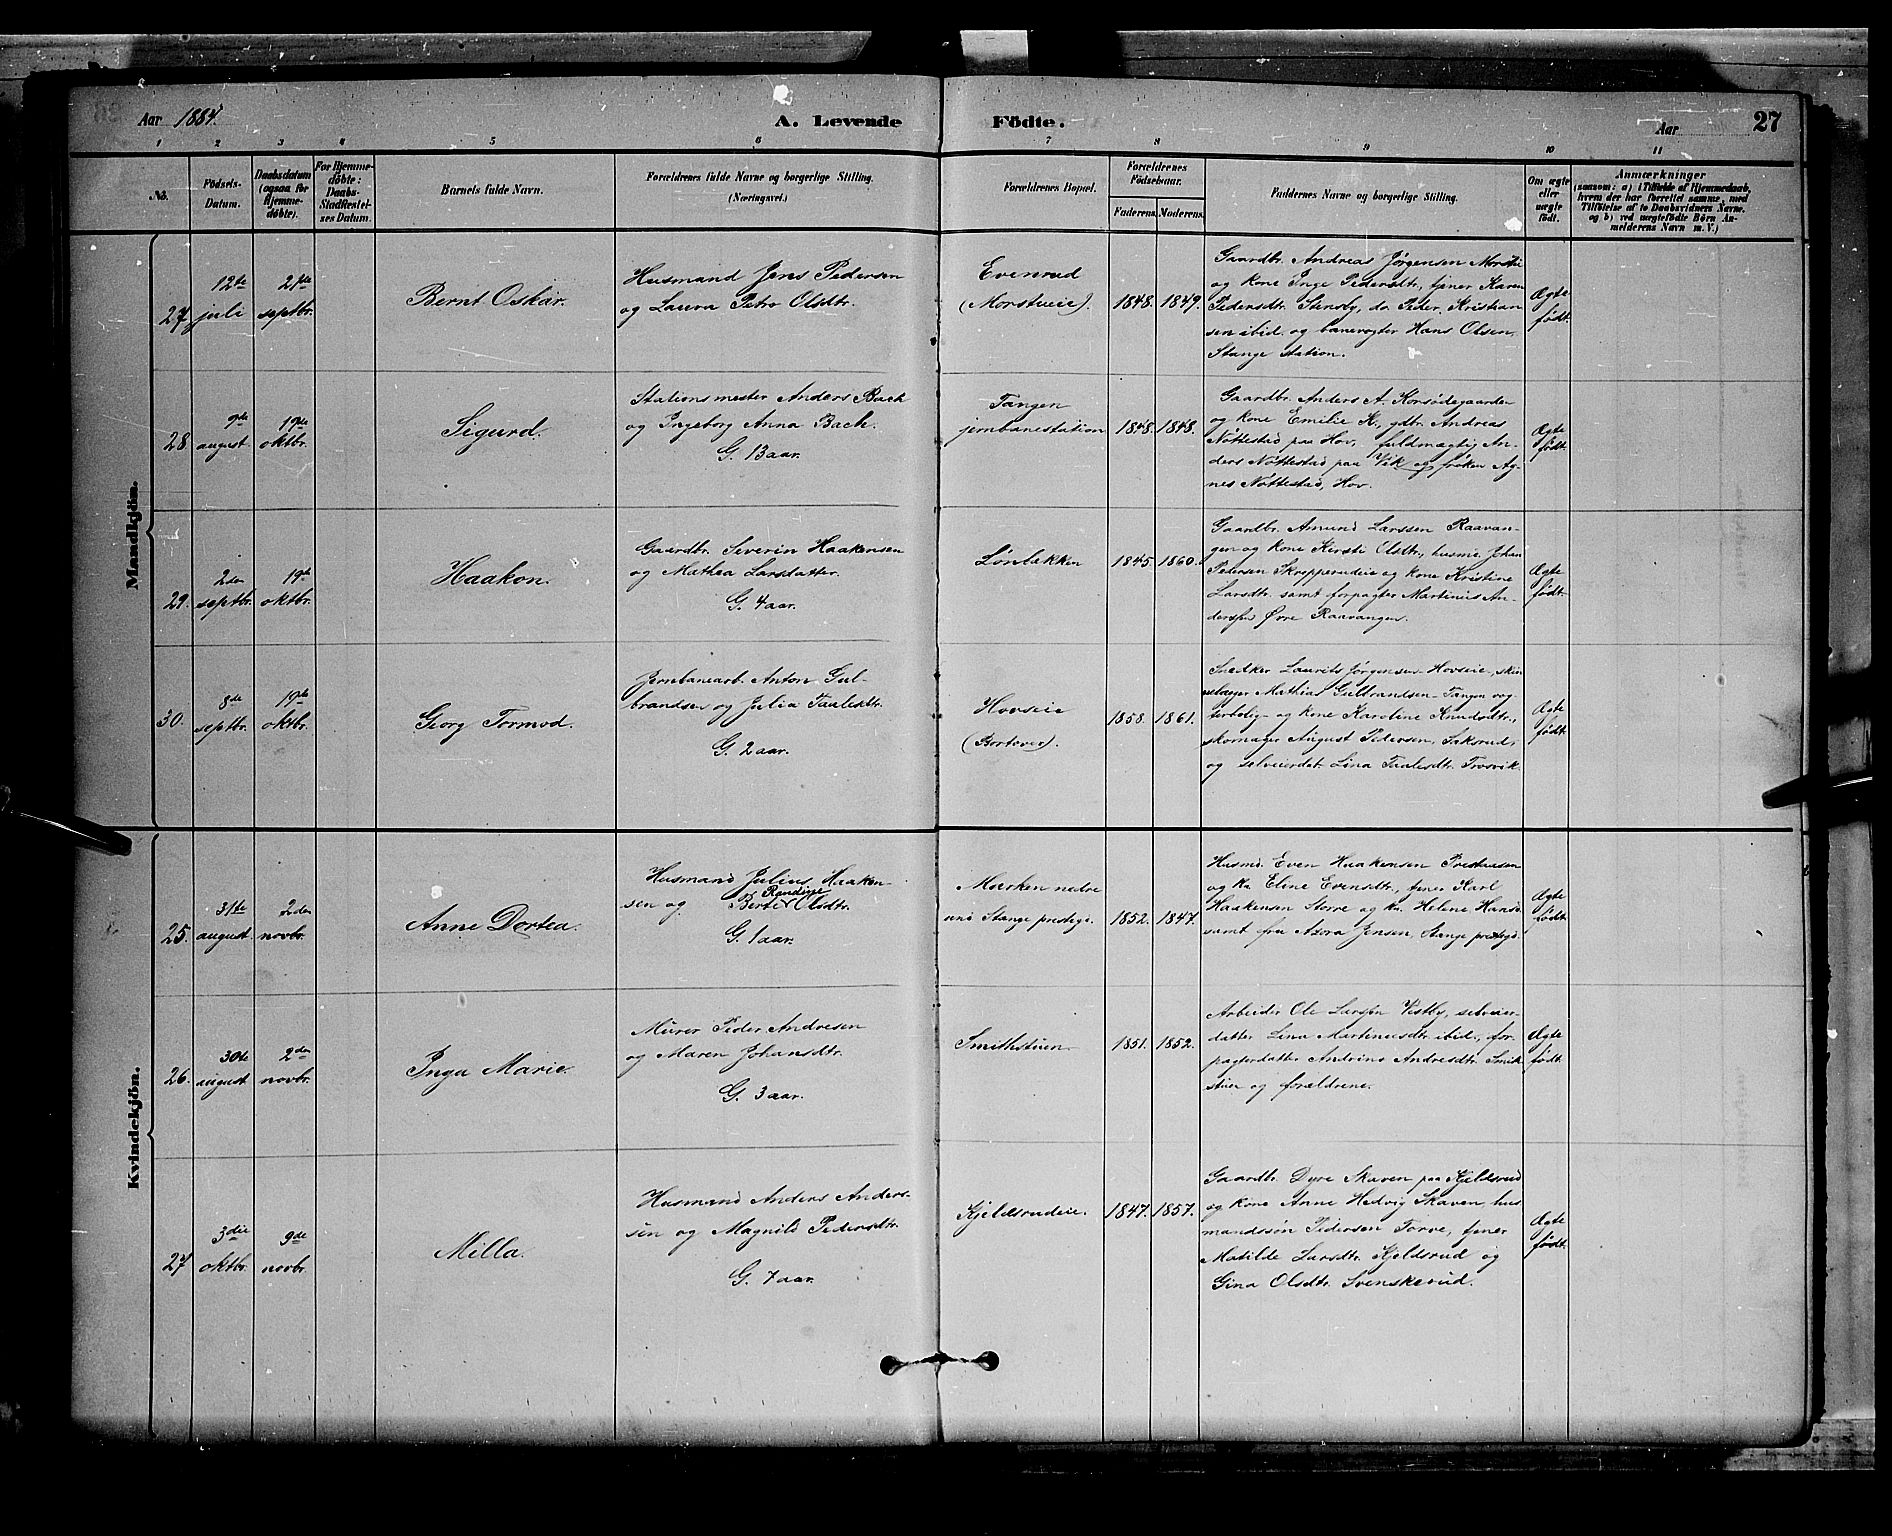 Aar 1884.
A. Levende Födte.
Aar
27
1 2 3 4 5 6 7 8 9 10 11
No.
Födsels-
Datum.
Daabsdatum
(ogsaa for
Hjemme-
döbte).
For Hjemme-
döbte:
Daabs-
Stadfæstel-
ses Datum.
Barnets fulde Navn.
Forældrenes fulde Navne og borgerlige Stilling.
(Næringsvei.)
Forældrenes Bopæl.
Forældrenes
Födselsaar.
Faderens. Moderens.
Faddernes Navne og borgerlige Stilling.
Om ægte
eller
uægte
födt.
Anmærkninger
(saasom: a) i Tilfælde af Hjemmedaab,
hvem der har forrettet samme, med
Tilföielse af to Daabsvidners Navne,
og b) ved uægtefödte Börn An-
melderens Navn m. V.)
Mandkjön.
27. 12te juli
21de septbr.
Bernt Oskar.
Husmand Jens Pedersen
og Laura Petra Olsdtr.
Evenrud
(Morstueie).
1848. 1849.
Gaardbr. Andreas Jørgensen Morstu
og kone Inge Pedersdtr., tjener Karen
Pedersdtr. Stensby, do Peder Kristian
sen ibid. og banevogter Hans Olsen,
Stange station.
Ægte
født.
28. 9de august
19de oktbr.
Sigurd.
Stationsmester Anders Bach
og Ingeborg Anna Bach.
G. 13 aar.
Tangen
jernbanestation
1848. 1848.
Gaardbr. Anders A. Korsødegaarden
og kone Emilie K., gdbr. Andreas
Nøttestad paa Hov, fuldmægtig An-
ders Nøttestad paa Vik og frøken Ag-
nes Nøttestad, Hov.
Ægte
født.
29. 2den septbr.
19de oktbr.
Haakon.
Gaardbr. Severin Haakensen
og Mathea Larsdatter.
G. 4 aar.
Lønbækken
1845 1860.
Gaardbr. Amund Larssen Raavan-
gen og kone Kersti Olsdtr., husmd. Johan
Pedersen Skrepperudeie og kone Kristine
Larsdtr. samt forpagter Martinus An-
derssen Øvre Raavangen.
Ægte
født.
30. 8de septbr.
19de oktbr.
Georg Tormod.
Jernbanearb. Anton Gul-
brandsen og Julia Taalesdtr.
G. 2 aar.
Hovseie
(Bortover).
1858. 1861.
Snedker Laurits Jørgensen Hovseie, skin
Mathias Guldrandsen Tangen vog-
terbolig og kone Karoline Knudsdtr.,
skomager August Pedersen, Saksrud,
og selveierdat. Lina Taalesdtr. Trosvik.
Ægte
født.
Kvindekjön.
25. 31te august.
2den novbr.
Anne Dortea.
Husmand Julius Haaken-
sen og Berte Randine Olsdtr.
G. 1 aar.
Mærken nedre
und. Stange prestegd.
1852. 1847.
Husmd. Even Haakensen Prestueen
og ko. Eline Evensdtr., tjener Karl
Haakensen Storre og ko. Helene Hansd.
samt fru Azora Jensen, Stange prestegd.
Ægte
født.
26. 30te august
2den novbr.
Inga Marie.
Murer Peder Andresen
og Maren Johansdtr.
G. 3 aar.
Smithstuen
1851. 1852.
Arbeider Ole Larssen Vestby, selveier-
datter Lina Martinusdtr. ibid., for-
pagterdatter Andrine Andresdtr. Smith-
stuen og forældrene.
Ægte
født.
27 3die oktbr.
9de novbr.
Milla.
Husmand Anders Anders-
sen og Magnild Pedersdtr.
G. 7 aar.
Kjeldsrudeie.
1847. 1857.
Gaardbr. Dyre Skaven paa Kjeldsrud
og kone Anne Hedvig Skaven, hus
mandssøn Pedersen Torve, tjener
Matilde Larsdtr. Kjeldsrud og
Gina Olsdtr. Svenskerud.
Ægte
født.